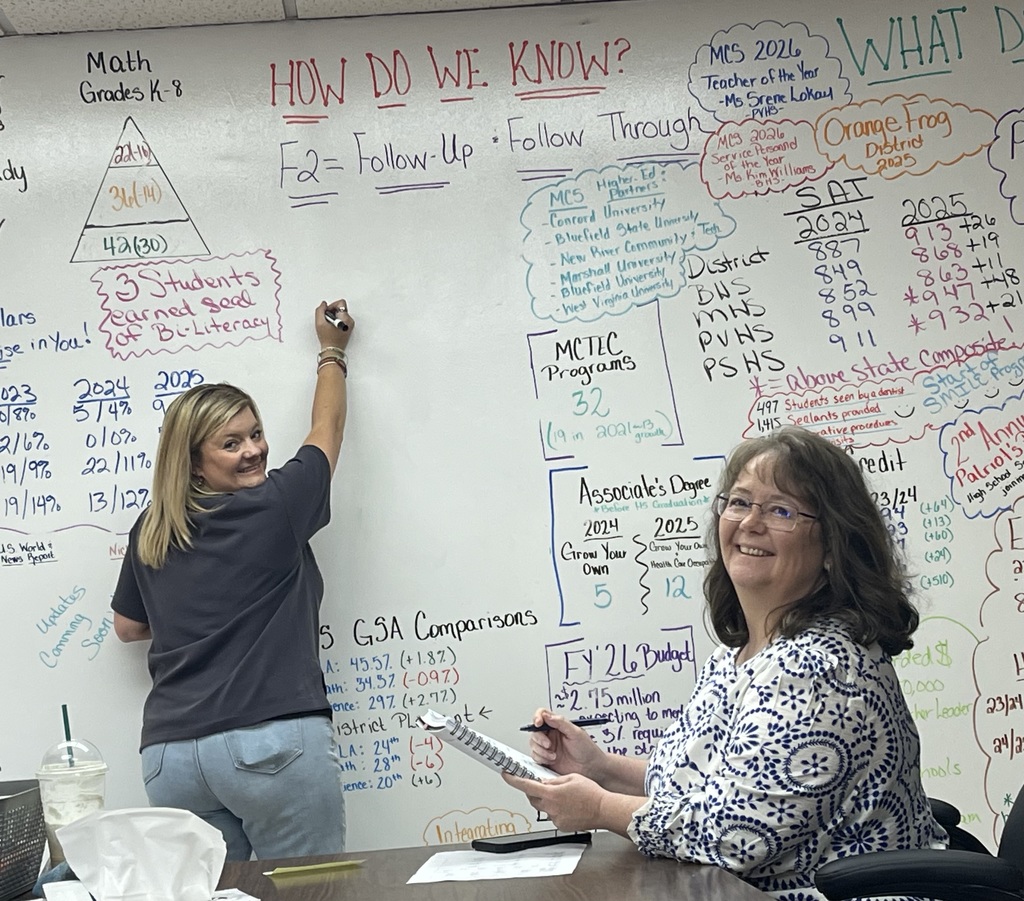 Math
Grades K-8
22(-16)
36(-14)
42(30)
3 Students
earned Seal
of Bi-Literacy
in You!
2024
2025
5/4%
0/0%
22/11%
13/12%
/8%
2/6%
19/9%
19/14%
US World &
News Report
Updates
Comming
Soon
HOW DO WE KNOW?
F2 = Follow-Up · Follow Through
MCS Higher-Ed
Partners:
- Concord University
- Bluefield State University
- New River Community + Tech
- Marshall University
- Bluefield University
- West Virginia University
MCTEC
Programs
32
(19 in 2021 -13
growth)
Associate's Degree
*Before HS Graduation*
2024
Grow Your
Own
5
2025
Grow Your Own
Health Care
12
GSA Comparisons
A: 45.5% (+1.8%)
ath: 34.5% (-0.9%)
ence: 29% (+2.7%)
istrict
LA: 24th (-4)
th: 28th (-6)
ience: 20th (+6)
FY'26 Budget
~$2.75 million
Integrating
WHAT D
MCS 2026
Teacher of the Year
- Ms Srene Lokay
-PVHS-
MCS 2026
Service Personnel
of the Year
- Ms. Kim Williams
-BHS-
Orange Frog
District
2025
SAT
2024 2025
District 887 913 +26
BHS 849 868 +19
MHS 852 863 +11
PVHS 899 *947 +48
PSHS 911 *932 +21
*= above state composide!
497 Students seen by a dentist
1,415 Sealants provided
ative procedures
Start of
SMILE
2nd Annu
Patriot's
High School
redit
23/24
(+64)
(+13)
(+60)
(+24)
(+510)
her Leader
23/24